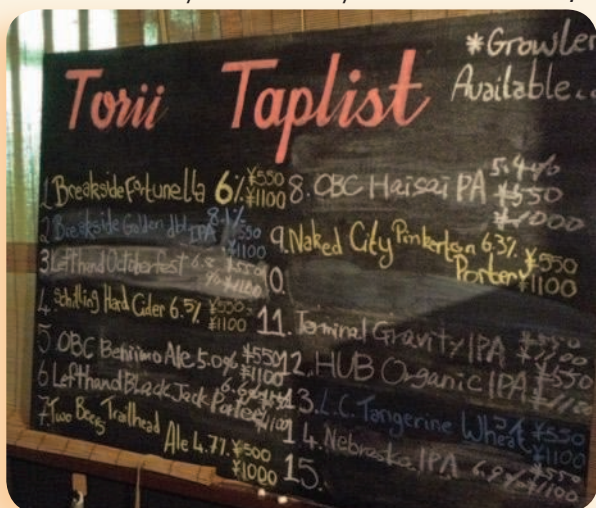 Torii Taplist
*Growler
Available..
1. Breakside Fortunella 6% ¥550
¥1100
2 Breakside Golden dbl IPA 8.1% ¥550
¥1100
3. Lefthand Octoberfest 6.6 ¥550
¥1100
4. Schilling Hard Cider 6.5% ¥550
¥1100
5. OBC Beniimo Ale 5.0% ¥550
¥1100
6 Lefthand Black Jack Porter
7. Two Beers Trailhead
Ale 4.77. ¥500
¥1000
8. OBC Haisai PA 5.4%
¥550
¥1000
9. Naked City Pinkerton 6.3% ¥550
Porter ¥1100
10.
11. Terminal Gravity IPA ¥550
¥1100
12. HUB Organic IPA ¥550
¥1100
13. L.C. Tangerine Wheat ¥550
¥1100
14. Nebraska IPA 6.9% ¥550
¥1100
15.